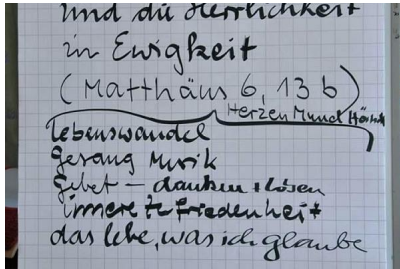 und die Herrlichkeit
in Ewigkeit
(Matthäus 6, 13 b)
Herzen Mund Händ
Lebenswandel
Gesang Musik
Gebet – danken + lösen
innere Zufriedenheit
das lebe, was ich glaube